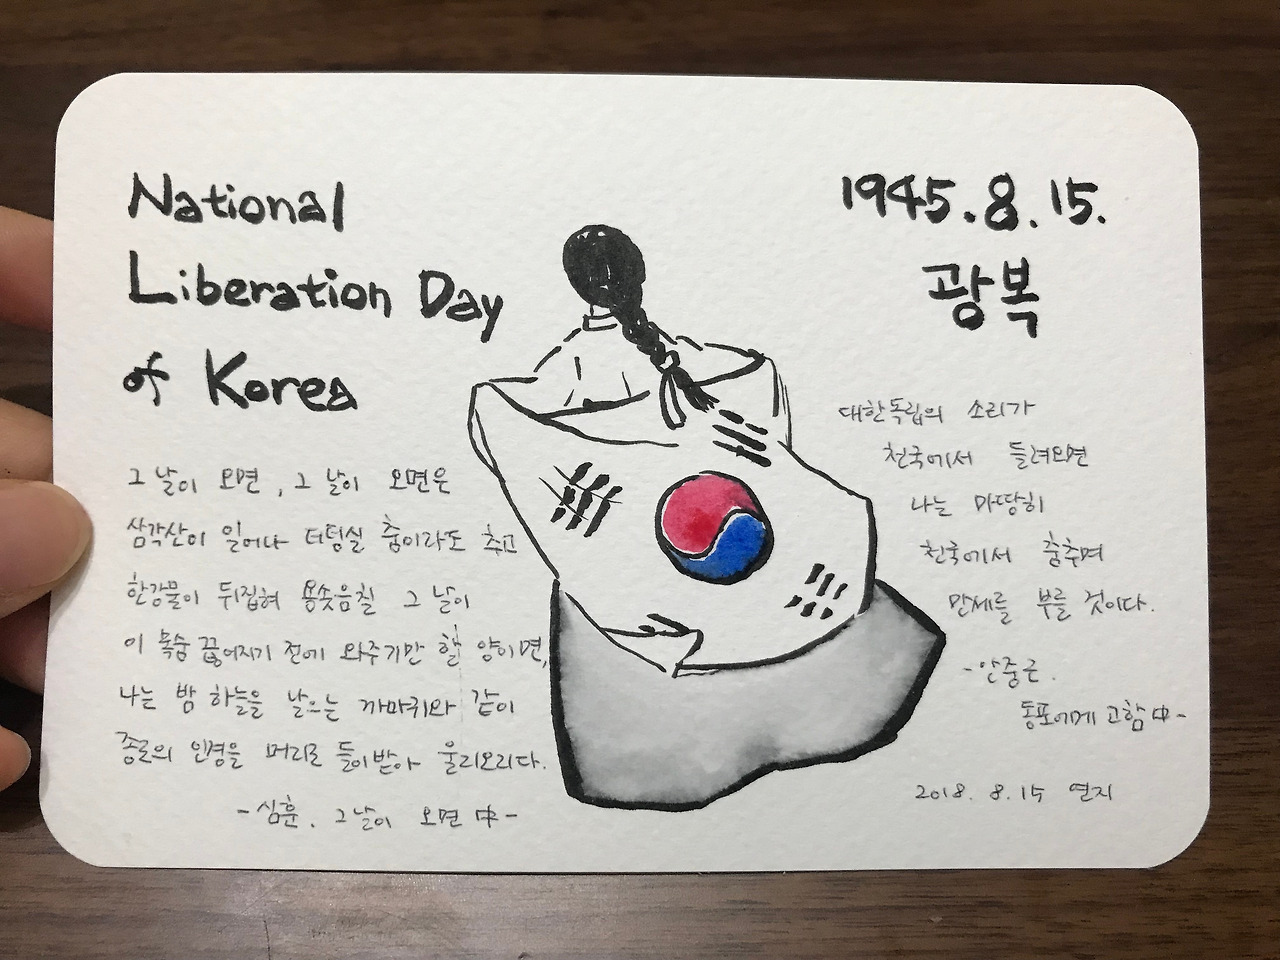 National
Liberation Day
of Korea
그 날이 오면, 그 날이 오면은
삼각산이 일어나 더덩실 춤이라도 추고
한강물이 뒤집혀 용솟음칠 그 날이
이 목숨 끊어지기 전에 와주기만 할 양이면,
나는 밤 하늘을 날으는 까마귀와 같이
종로의 인경을 머리로 들이받아 울리오리다.
-심훈. 그날이 오면 中-
1945.8.15.
광복
대한독립의 소리가
천국에서 들려오면
나는 마땅히
천국에서 춤추며
만세를 부를 것이다.
-안중근.
동포에게 고함 中-
2018. 8. 15 연지